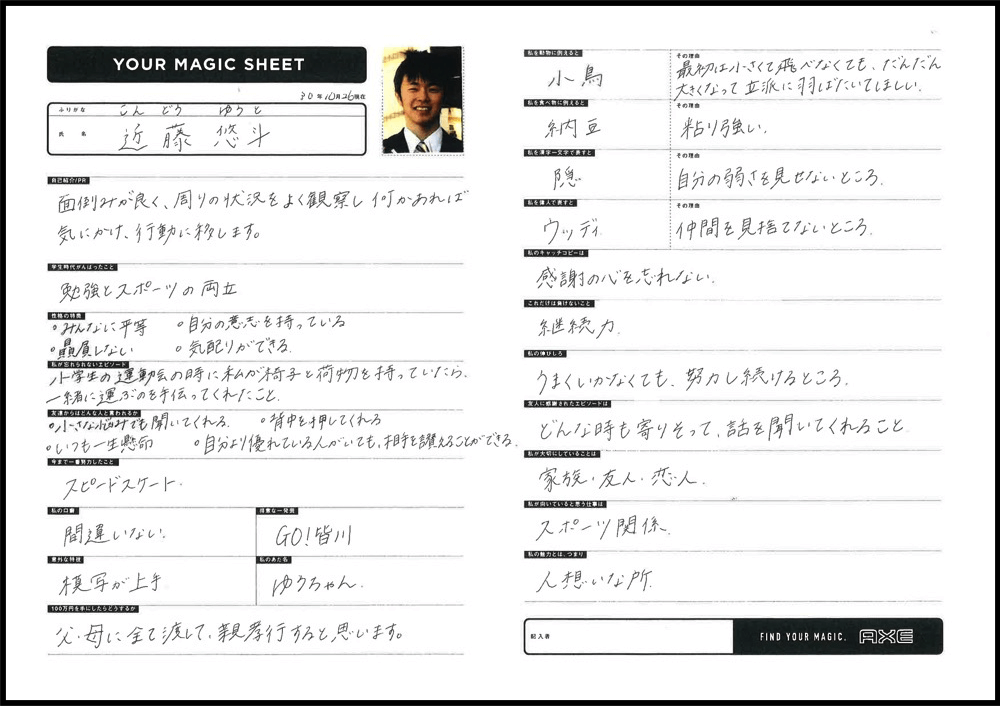 YOUR MAGIC SHEET
30年10月26現在
ふりがな こんどう ゆうと
氏名 近藤 悠斗
自己紹介/PR
面倒みが良く、周りの状況をよく観察し何かあれば
気にかけ、行動に移します。
学生時代がんばったこと
勉強とスポーツの両立
性格の特徴
・みんなに平等 ・自分の意志を持っている
・贔屓しない ・気配りができる.
私が忘れられないエピソード
小学生の運動会の時に私が椅子と荷物を持っていたら、
一緒に運ぶのを手伝ってくれたこと.
友達からはどんな人と言われるか
・小さな悩みでも聞いてくれる. ・背中を押してくれる
・いつも一生懸命 ・自分より優れている人がいても、相手を讃えることができる.
今まで一番努力したこと
スピードスケート.
私の口癖 得意な一発芸
間違いない. GO!皆川
意外な特技 私のあだ名
模写が上手 ゆうちゃん.
100万円を手にしたらどうするか
父・母に全て渡して、親孝行すると思います。
私を動物に例えると その理由
小鳥 最初は小さくて飛べなくても、だんだん
大きくなって立派に羽ばたいてほしい.
私を食べ物に例えると その理由
納豆 粘り強い.
私を漢字一文字で表すと その理由
隠 自分の弱さを見せないところ.
私を偉人で表すと その理由
ウッディ 仲間を見捨てないところ.
私のキャッチコピーは
感謝の心を忘れない.
これだけは負けないこと
継続力.
私の伸びしろ
うまくいかなくても、努力し続けるところ.
友人に感謝されたエピソードは
どんな時も寄りそって、話を聞いてくれること.
私が大切にしていることは
家族・友人・恋人.
私が向いていると思う仕事は
スポーツ関係.
私の魅力とは、つまり
人想いな所.
記入者
FIND YOUR MAGIC. AXE